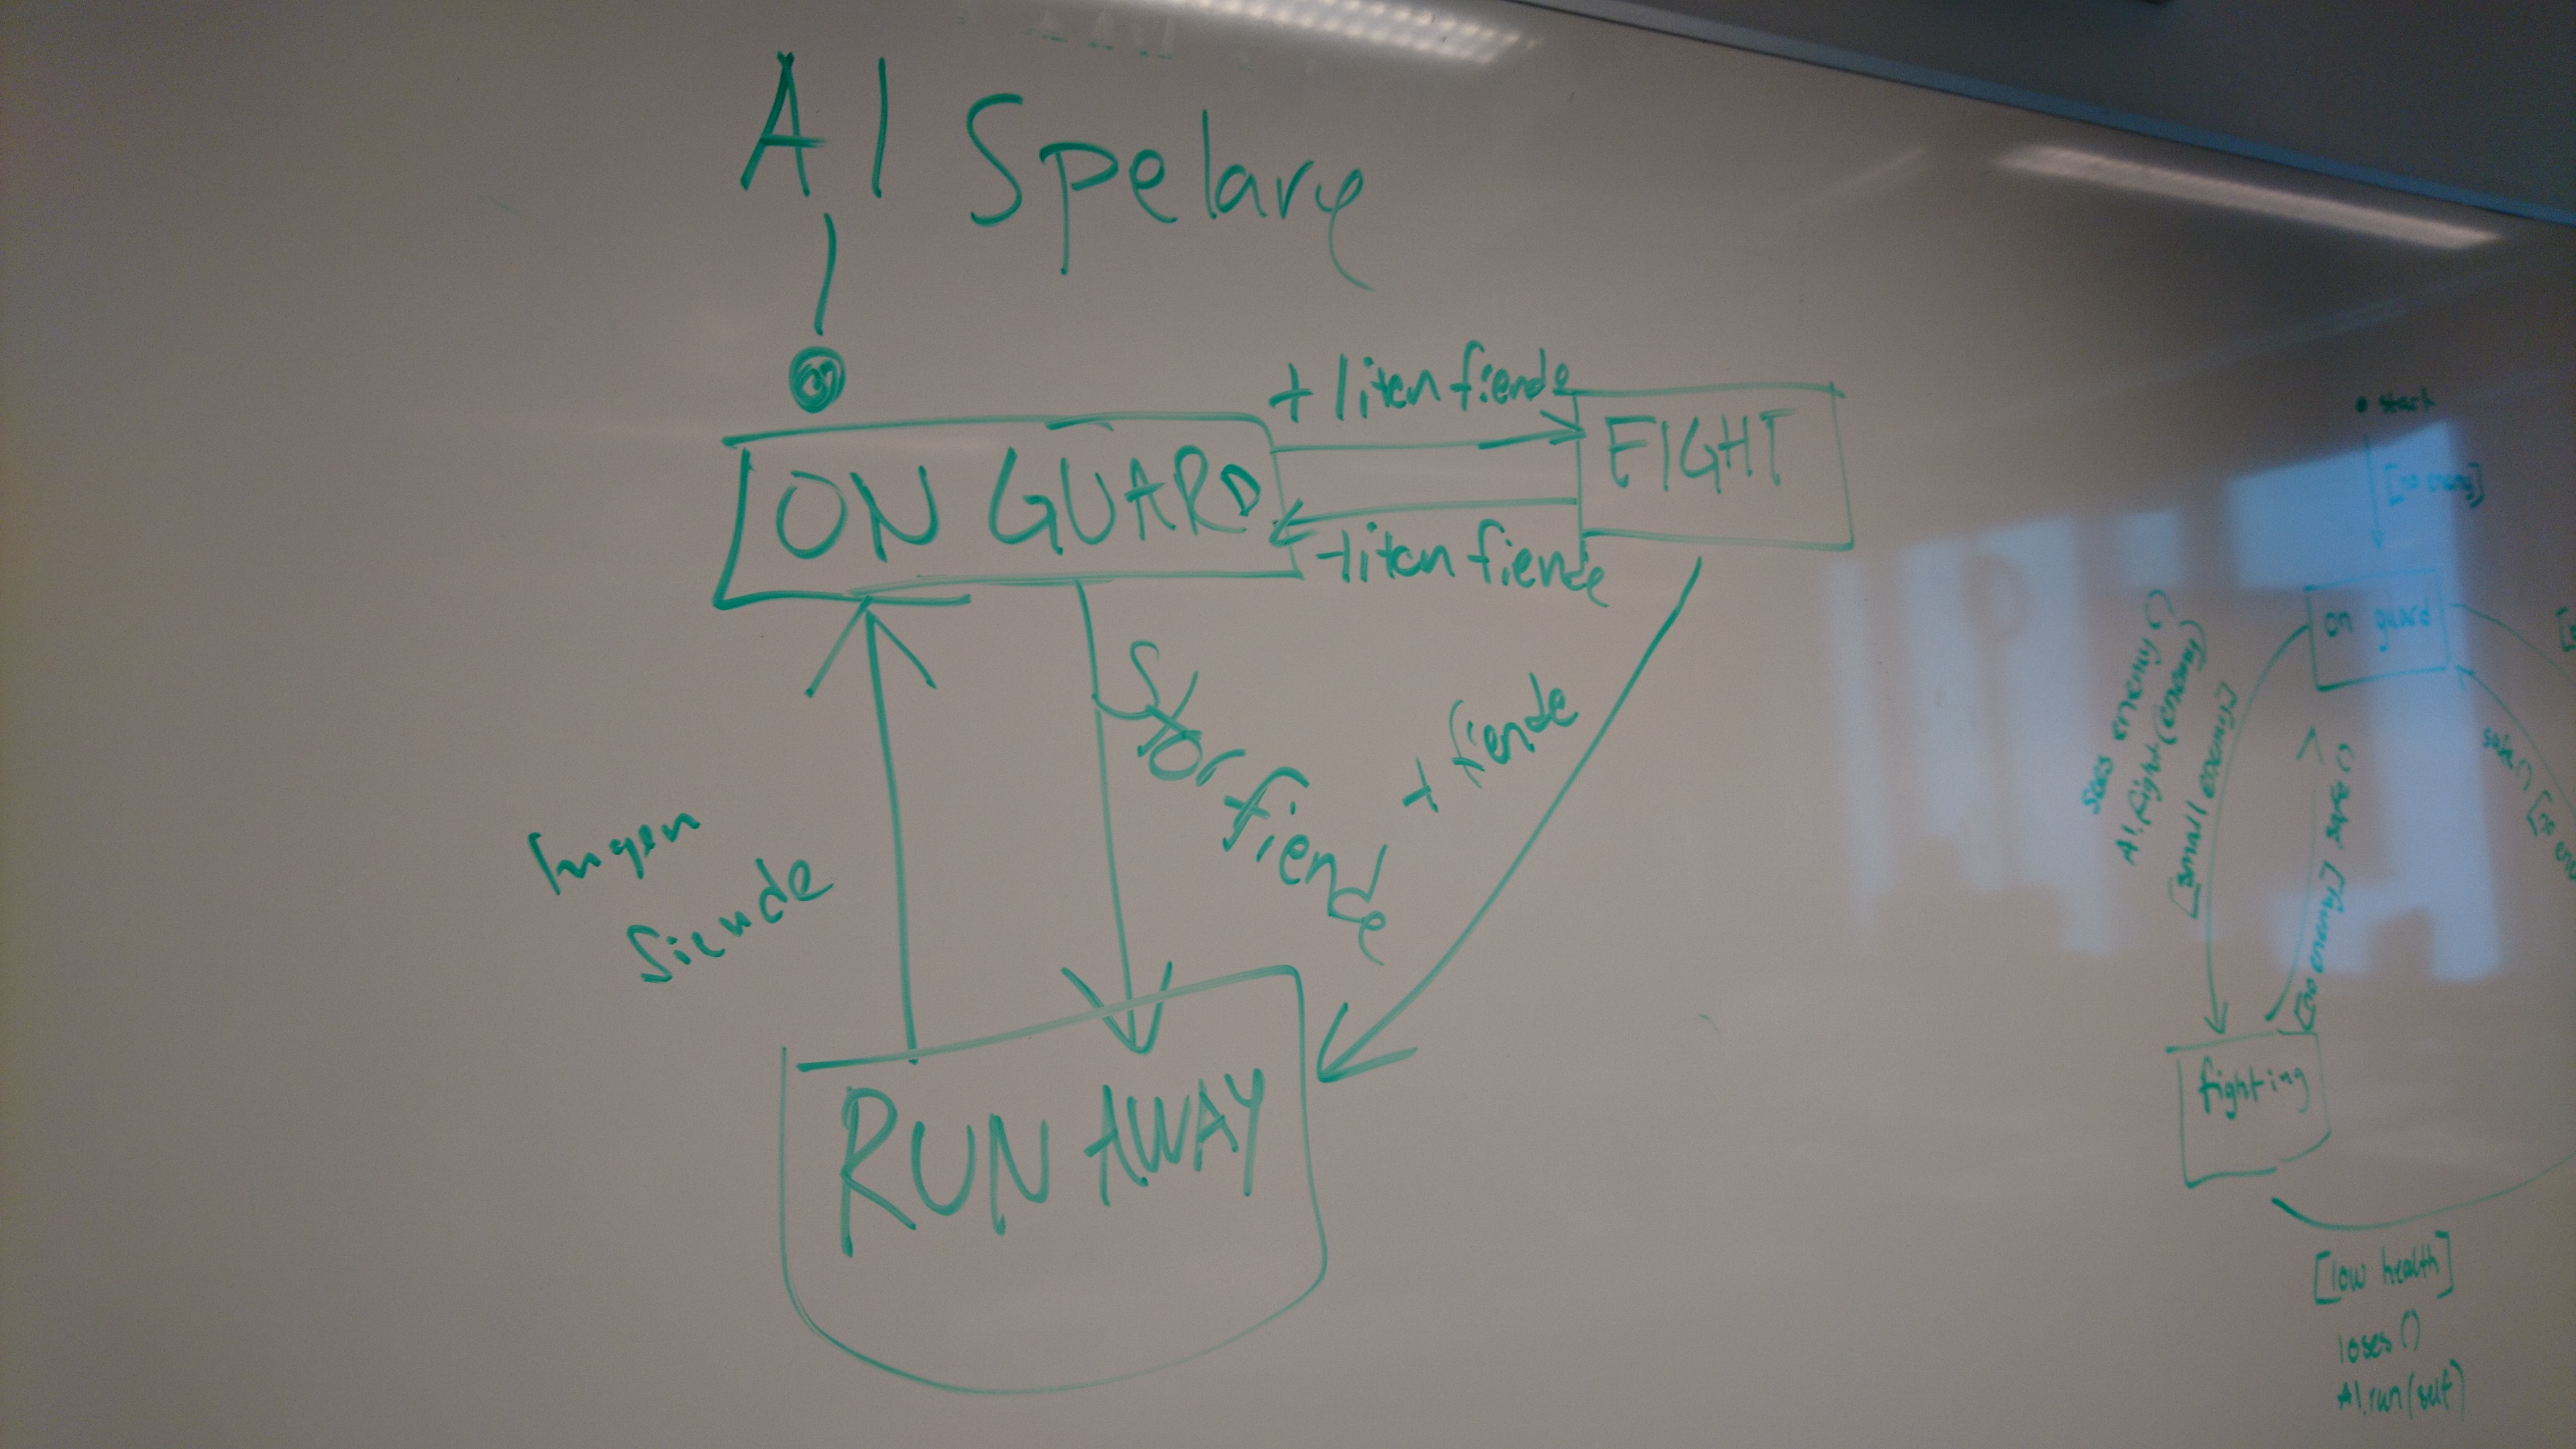 AI Spelare
+ liten fiende
ON GUARD
FIGHT
-liten fiende
Stor fiende
+ fiende
Ingen
fiende
RUN AWAY
start
[no enemy]
on guard
sees enemy()
AI.fight(enemy)
[small enemy]
[no enemy] safe()
safe()
fighting
[low health]
loses()
AI.run(self)